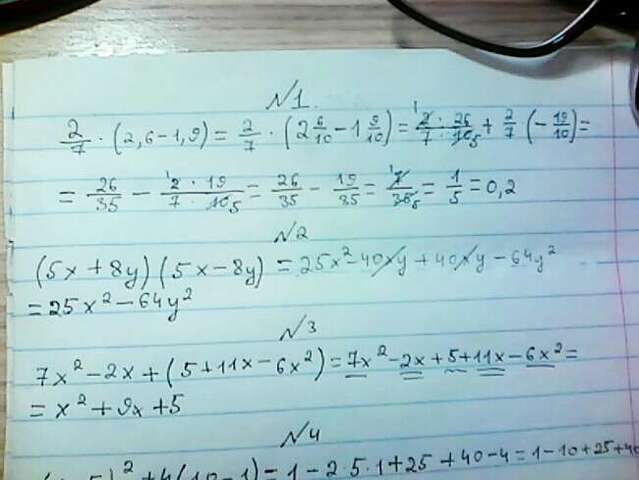 №1.
2/7 · (2,6 - 1,9) = 2/7 · (2 6/10 - 1 9/10) = 2 · 26 / 7 · 10 5 + 2/7 (- 19/10) =
= 26/35 - 2 · 19 / 7 · 10 5 = 26/35 - 19/35 = 7/35 5 = 1/5 = 0,2
№2
(5x + 8y) (5x - 8y) = 25x² - 40xy + 40xy - 64y²
= 25x² - 64y²
№3
7x² - 2x + (5 + 11x - 6x²) = 7x² - 2x + 5 + 11x - 6x² =
= x² + 9x + 5
№4
² + 4(10 - 1) = 1 - 2·5·1 + 25 + 40 - 4 = 1 - 10 + 25 + 40